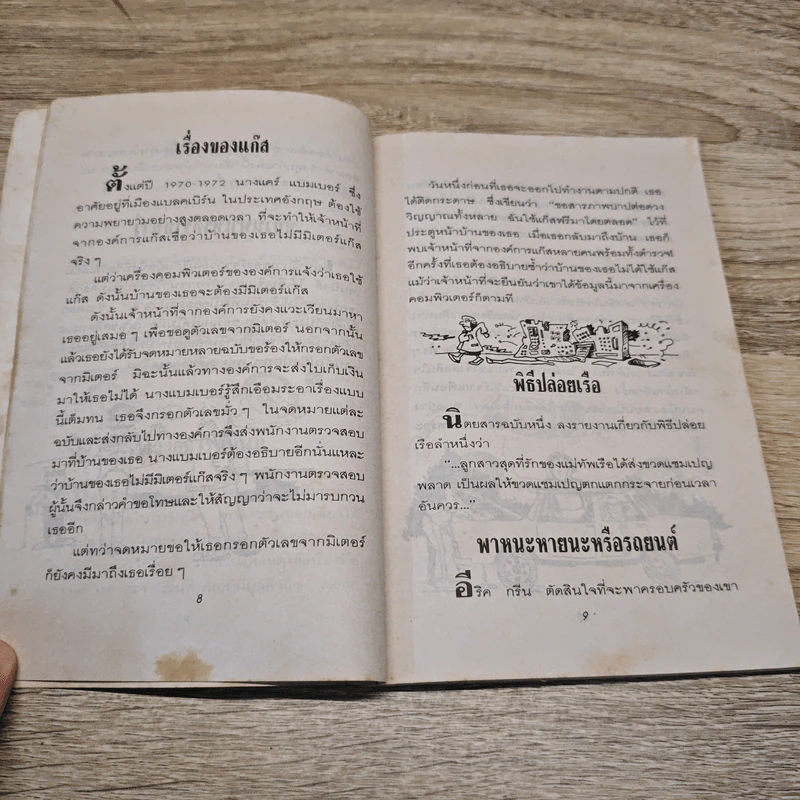 เรื่องของแก๊ส
ตั้งแต่ปี 1970-1972 นางแคร์ แบมเบอร์ ซึ่ง
อาศัยอยู่ที่เมืองแบลคเบิร์น ในประเทศอังกฤษ ต้องใช้
ความพยายามอย่างสูงตลอดเวลา ที่จะทำให้เจ้าหน้าที่
จากองค์การแก๊สเชื่อว่าบ้านของเธอไม่มีมิเตอร์แก๊ส
จริง ๆ
แต่ว่าเครื่องคอมพิวเตอร์ขององค์การแจ้งว่าเธอใช้
แก๊ส ดังนั้นบ้านของเธอจะต้องมีมิเตอร์แก๊ส
ดังนั้นเจ้าหน้าที่จากองค์การยังคงแวะเวียนมาหา
เธออยู่เสมอ ๆ เพื่อขอดูตัวเลขจากมิเตอร์ นอกจากนั้น
แล้วเธอยังได้รับจดหมายหลายฉบับขอร้องให้กรอกตัวเลข
จากมิเตอร์ มิฉะนั้นแล้วทางองค์การจะส่งใบเก็บเงิน
มาให้เธอไม่ได้ นางแบมเบอร์รู้สึกเอือมระอาเรื่องแบบ
นี้เต็มทน เธอจึงกรอกตัวเลขมั่ว ๆ ในจดหมายแต่ละ
ฉบับและส่งกลับไปทางองค์การจึงส่งพนักงานตรวจสอบ
มาที่บ้านของเธอ นางแบมเบอร์ต้องอธิบายอีกนั่นแหละ
ว่าบ้านของเธอไม่มีมิเตอร์แก๊สจริง ๆ พนักงานตรวจสอบ
ผู้นั้นจึงกล่าวคำขอโทษและให้สัญญาว่าจะไม่มารบกวน
เธออีก
แต่ทว่าจดหมายขอให้เธอกรอกตัวเลขจากมิเตอร์
ก็ยังคงมีมาถึงเธอเรื่อย ๆ
8
วันหนึ่งก่อนที่เธอจะออกไปทำงานตามปกติ เธอ
ได้ติดกระดาษ ซึ่งเขียนว่า “ขอสารภาพบาปต่อดวง
วิญญาณทั้งหลาย ฉันใช้แก๊สฟรีมาโดยตลอด” ไว้ที่
ประตูหน้าบ้านของเธอ เมื่อเธอกลับมาถึงบ้าน เธอก็
พบเจ้าหน้าที่จากองค์การแก๊สหลายคนพร้อมทั้งตำรวจ!
อีกครั้งที่เธอต้องอธิบายซ้ำว่าบ้านของเธอไม่ได้ใช้แก๊ส
แม้ว่าเจ้าหน้าที่จะยืนยันว่าเขาได้ข้อมูลนี้มาจากเครื่อง
คอมพิวเตอร์ก็ตามที
พิธีปล่อยเรือ
นิตยสารฉบับหนึ่ง ลงรายงานเกี่ยวกับพิธีปล่อย
เรือลำหนึ่งว่า
“...ลูกสาวสุดที่รักของแม่ทัพเรือได้ส่งขวดแชมเปญ
พลาด เป็นผลให้ขวดแชมเปญตกแตกกระจายก่อนเวลา
อันควร...”
พาหนะหายนะหรือรถยนต์
อีริค กรีน ตัดสินใจที่จะพาครอบครัวของเขา
9